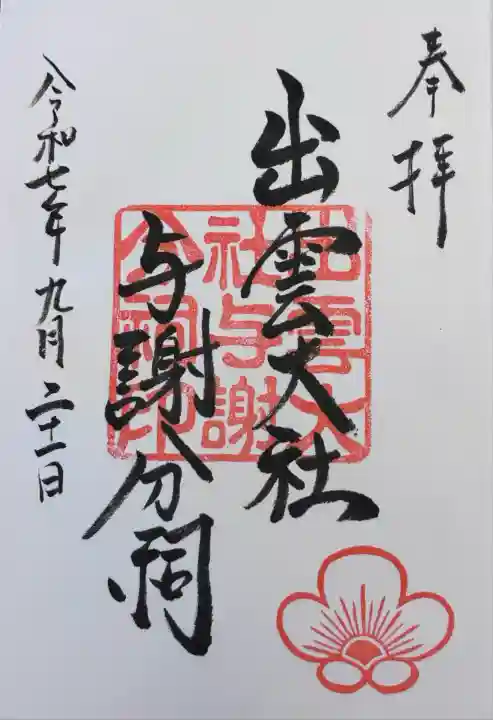 奉拝
出雲大社
与謝分祠
出雲大
社与謝
分祠印
令和七年九月二十一日